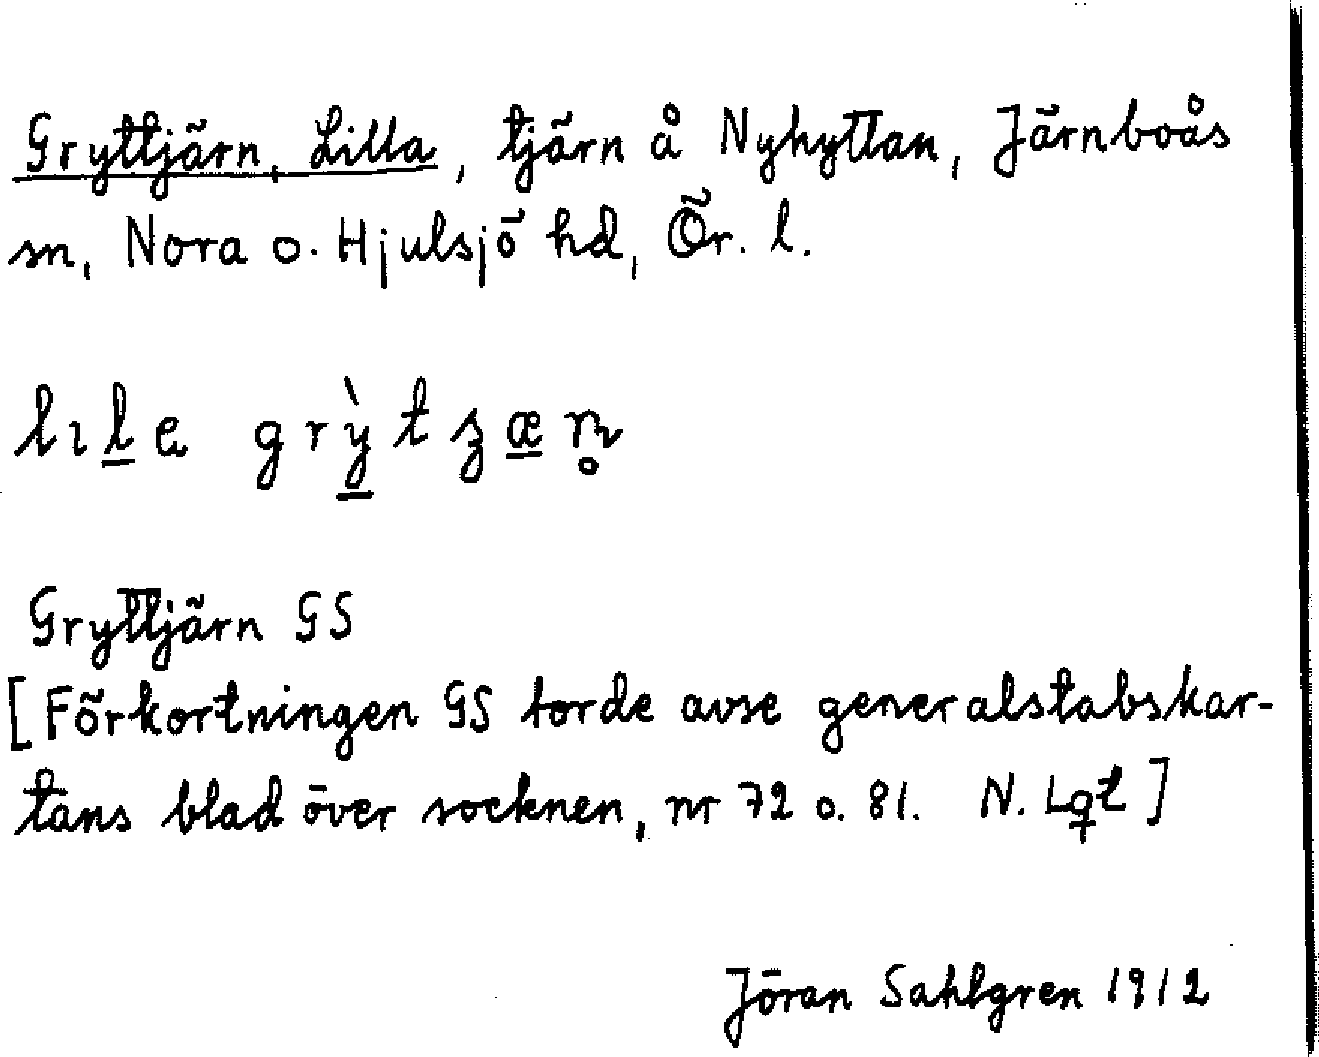 Gryttjärn, Lilla, tjärn å Nyhyttan, Järnboås
sn, Nora o. Hjulsjö hd, Ör. l.
lıla grỳtʒæn̥
Gryttjärn GS
[Förkortningen GS torde avse generalstabskar-
tans blad över socknen, nr 72 o. 81. N. Lqt]
Jöran Sahlgren 1912